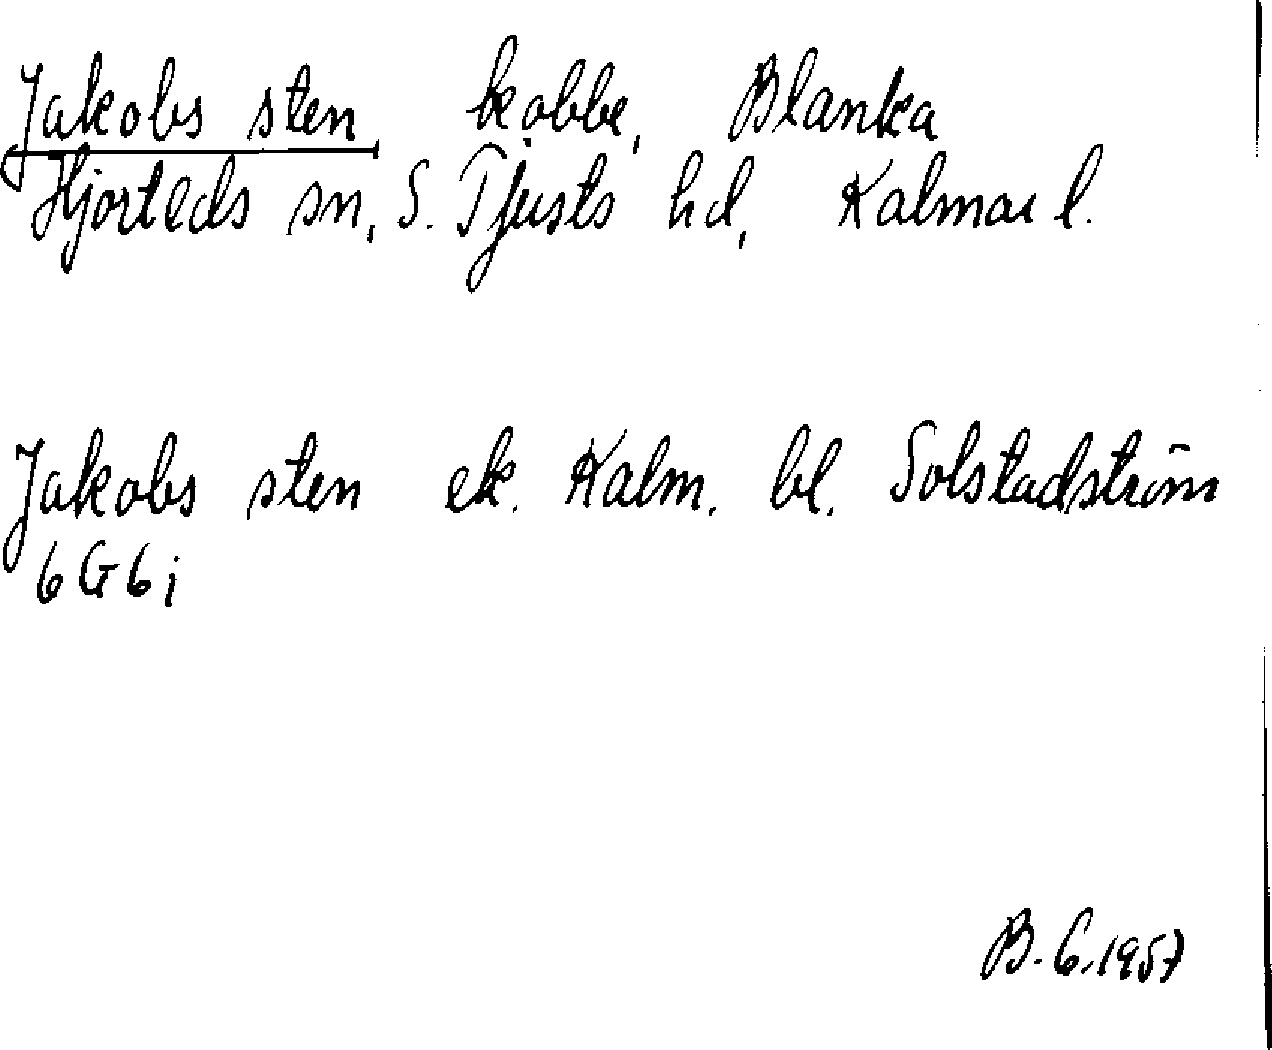 Jakobs sten, kobbe, Blanka
Hjorteds sn, S. Tjusts hd, Kalmar l.
Jakobs sten ek. Kalm. bl. Solstadström
6G6i
B.G.1957